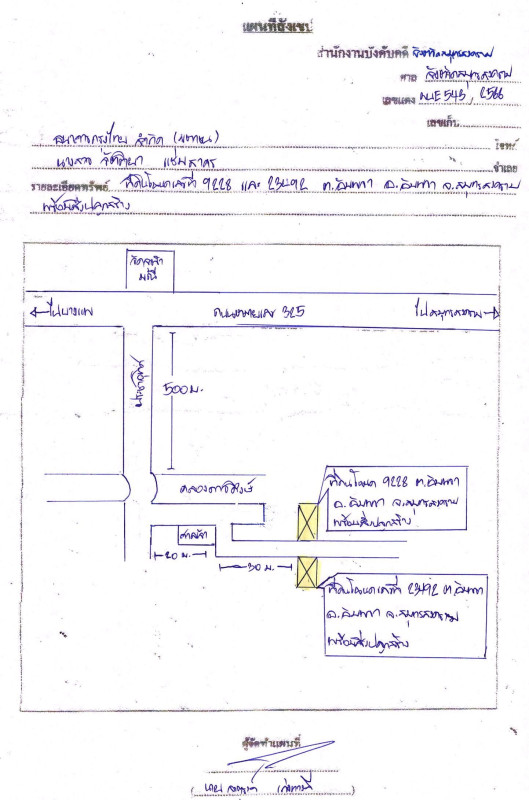 แผนที่สังเขป
สำนักงานบังคับคดี จังหวัดสมุทรสงคราม
ศาล จังหวัดสมุทรสงคราม
เลขแดง ผบE 543, 2566
เลขเก็บ
ธนาคารกรุงไทย จำกัด (มหาชน) โจทก์
นางสาว แช่มสาคร จำเลย
รายละเอียดทรัพย์ ที่ดินโฉนดเลขที่ 9228 และ 23492 ต.อัมพวา อ.อัมพวา จ.สมุทรสงคราม
พร้อมสิ่งปลูกสร้าง
มณี
ไปบางแพ
ถนนหมายเลข 325
ไปสมุทรสงคราม
ประชาอุทิศ
500 ม.
ที่ดินโฉนด 9228 ต.อัมพวา
อ.อัมพวา จ.สมุทรสงคราม
พร้อมสิ่งปลูกสร้าง
ศาลเจ้า
20 ม.
30 ม.
ที่ดินโฉนดเลขที่ 23492 ต.อัมพวา
อ.อัมพวา จ.สมุทรสงคราม
พร้อมสิ่งปลูกสร้าง
ผู้จัดทำแผนที่